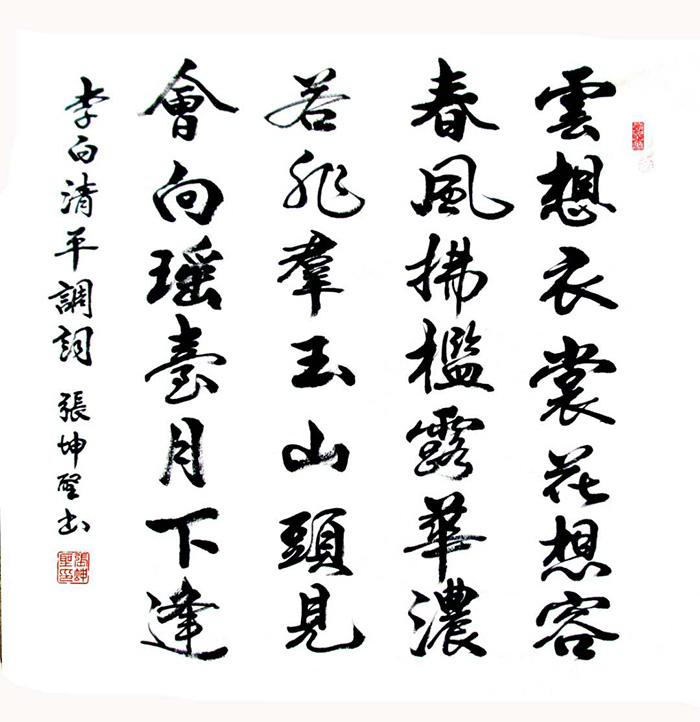 雲想衣裳花想容
春風拂檻露華濃
若非羣玉山頭見
會向瑶臺月下逢
李白清平調詞 張坤书